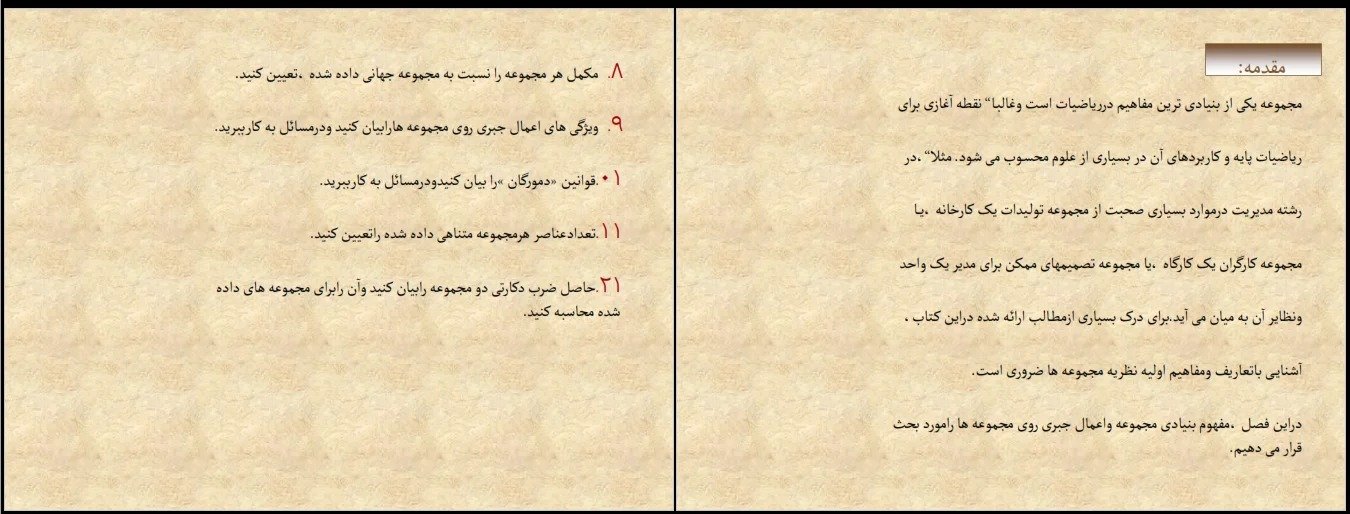 مقدمه:
مجموعه یکی از بنیادی ترین مفاهیم درریاضیات است وغالبا“ نقطه آغازی برای
ریاضیات پایه و کاربردهای آن در بسیاری از علوم محسوب می شود. مثلا“ ،در
رشته مدیریت درموارد بسیاری صحبت از مجموعه تولیدات یک کارخانه ،یا
مجموعه کارگران یک کارگاه ،یا مجموعه تصمیمهای ممکن برای مدیر یک واحد
ونظایر آن به میان می آید.برای درک بسیاری ازمطالب ارائه شده دراین کتاب ،
آشنایی باتعاریف ومفاهیم اولیه نظریه مجموعه ها ضروری است.
دراین فصل ،مفهوم بنیادی مجموعه واعمال جبری روی مجموعه ها رامورد بحث
قرار می دهیم.
۸. مکمل هر مجموعه را نسبت به مجموعه جهانی داده شده ،تعیین کنید.
۹. ویژگی های اعمال جبری روی مجموعه هارابیان کنید ودرمسائل به کارببرید.
۱۰.قوانین «دمورگان »را بیان کنیدودرمسائل به کارببرید.
۱۱.تعدادعناصر هرمجموعه متناهی داده شده راتعیین کنید.
۲۱.حاصل ضرب دکارتی دو مجموعه رابیان کنید وآن رابرای مجموعه های داده
شده محاسبه کنید.